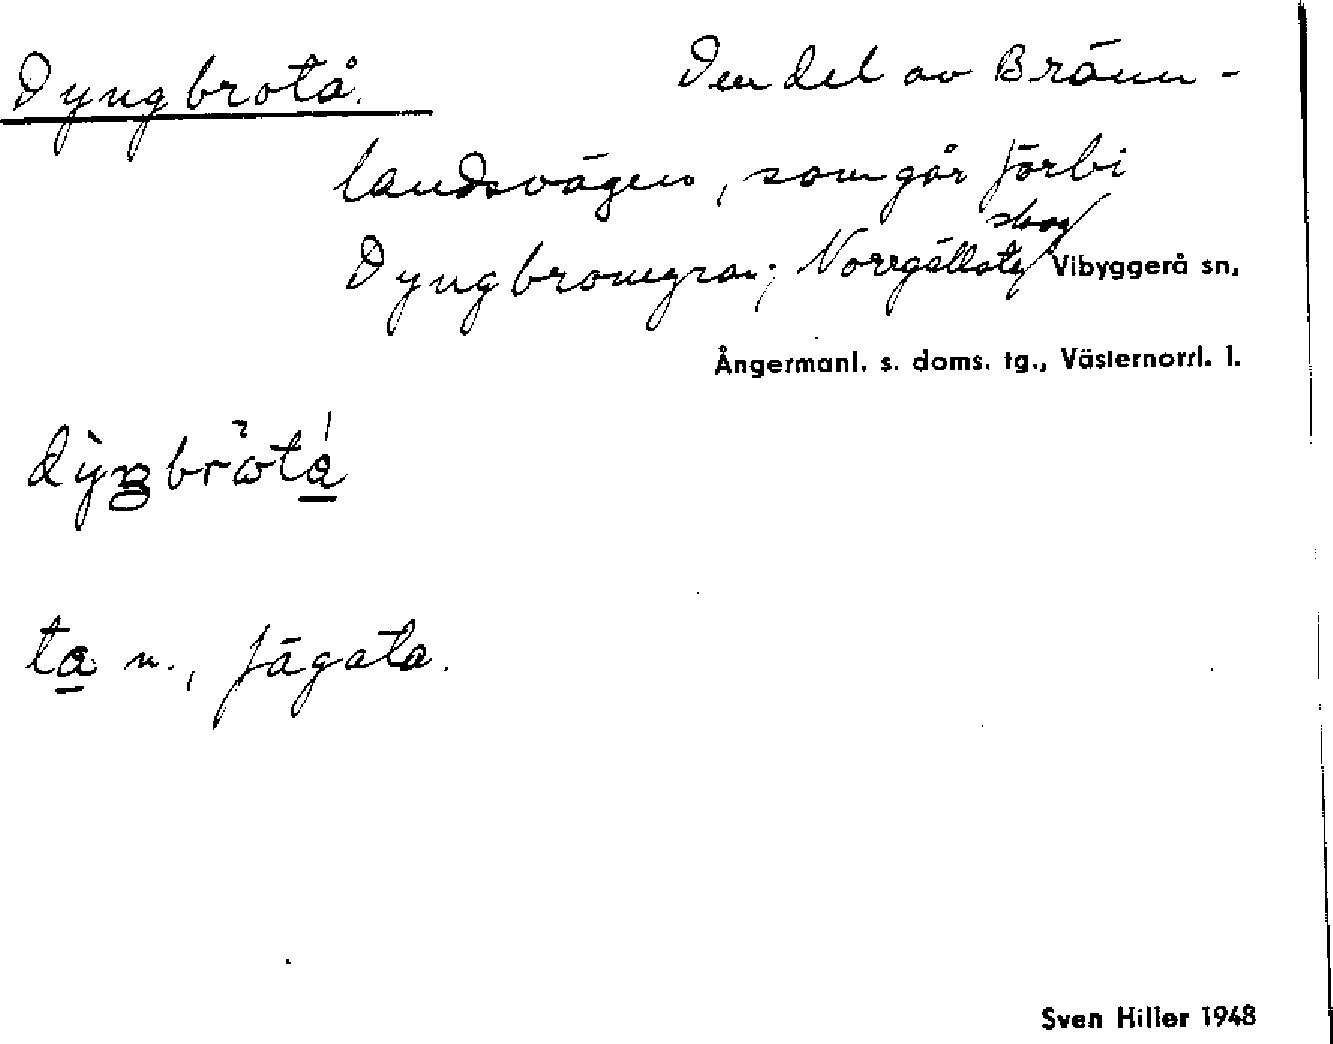 Dyngbrotå. Den del av Bränn-
landsvägen, som går förbi
skog
Dyngbromyran; Norrgällsta, Vibyggerå sn,
Ångermanl. s. doms. tg., Västernorrl. l.
ta n., fägata.
Sven Hiller 1948